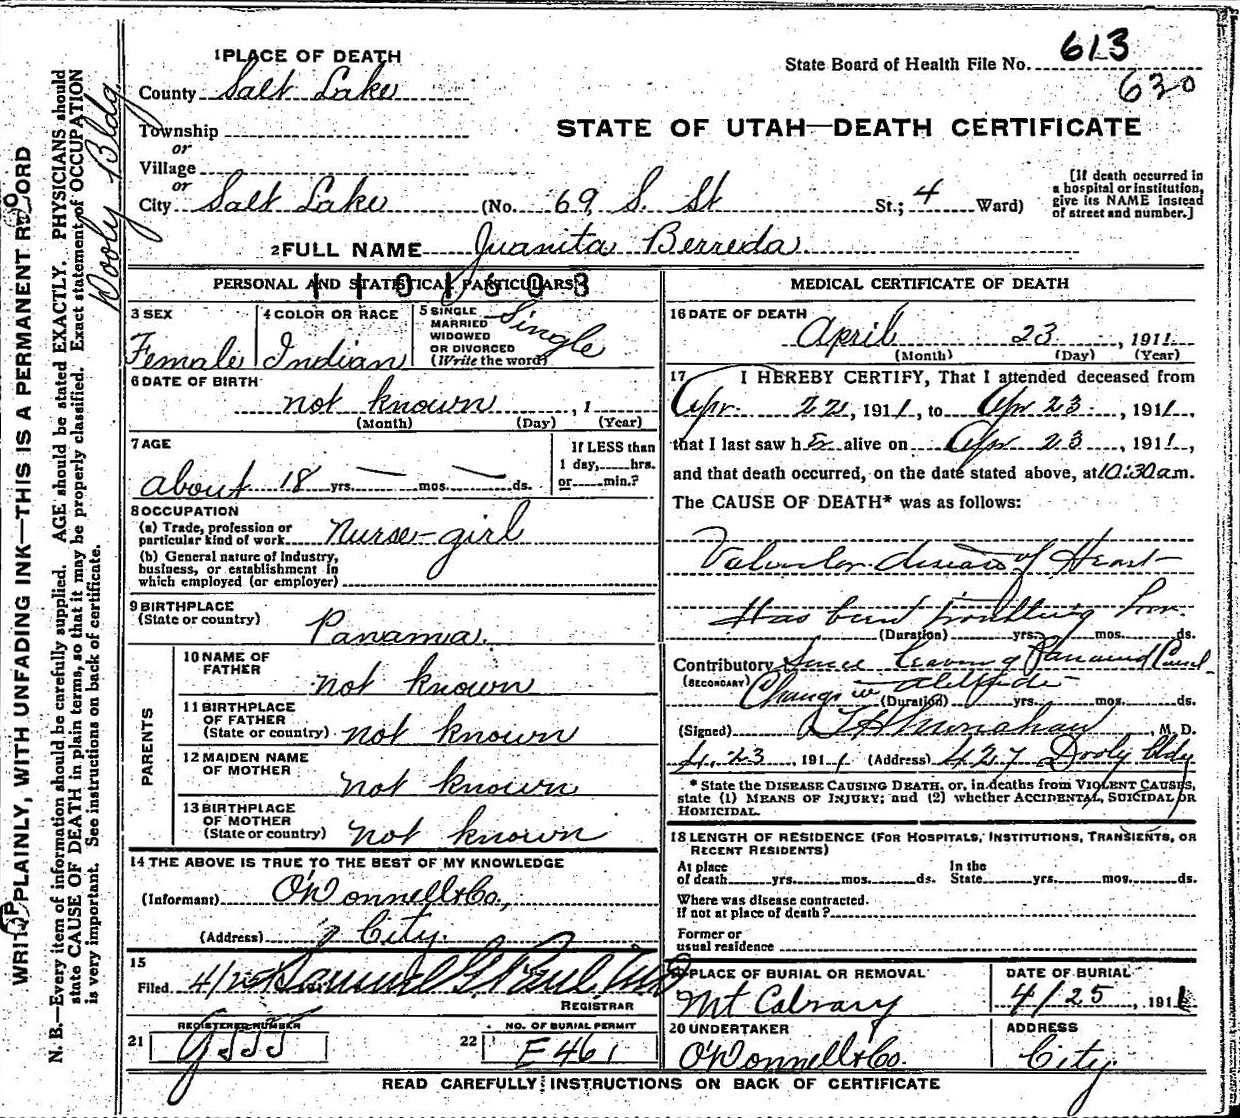 1 PLACE OF DEATH
County Salt Lake
Township
or
Village
or
City Salt Lake (No. 69 S. St St.; 4 Ward)
State Board of Health File No. 613
620
STATE OF UTAH—DEATH CERTIFICATE
[If death occurred in
a hospital or institution,
give its NAME instead
of street and number.]
2 FULL NAME Juanita Berreda
PERSONAL AND STATISTICAL PARTICULARS
1101603
3 SEX
Female
4 COLOR OR RACE
Indian
5 SINGLE
MARRIED
WIDOWED
OR DIVORCED
(Write the word)
Single
6 DATE OF BIRTH
not known , 1
(Month) (Day) (Year)
7 AGE
about 18 yrs. — mos. — ds.
If LESS than
1 day, hrs.
or min.?
8 OCCUPATION
(a) Trade, profession or
particular kind of work Nurse-girl
(b) General nature of industry,
business, or establishment in
which employed (or employer)
9 BIRTHPLACE
(State or country)
Panama.
PARENTS
10 NAME OF
FATHER
not known
11 BIRTHPLACE
OF FATHER
(State or country) not known
12 MAIDEN NAME
OF MOTHER
not known
13 BIRTHPLACE
OF MOTHER
(State or country) not known
14 THE ABOVE IS TRUE TO THE BEST OF MY KNOWLEDGE
(Informant) O'Donnell & Co.,
(Address) City.
15
Filed 4/25 Samuel G Paul MD
REGISTRAR
21 REGISTERED NUMBER
22 NO. OF BURIAL PERMIT
E461
MEDICAL CERTIFICATE OF DEATH
16 DATE OF DEATH
April 23, 1911
(Month) (Day) (Year)
17 I HEREBY CERTIFY, That I attended deceased from
Apr. 22, 1911, to Apr 23, 1911,
that I last saw her alive on Apr 23, 1911,
and that death occurred, on the date stated above, at 10:30 a.m.
The CAUSE OF DEATH* was as follows:
Valvular disease of Heart
Has been troubling her
(Duration) yrs. mos. ds.
Contributory Since leaving Panama Canal
(SECONDARY) Change in altitude
(Duration) yrs. mos. ds.
(Signed) Monahan, M. D.
4-23, 1911 (Address) 427 Dooly Bldg
* State the DISEASE CAUSING DEATH, or, in deaths from VIOLENT CAUSES,
state (1) MEANS OF INJURY; and (2) whether ACCIDENTAL, SUICIDAL, OR
HOMICIDAL.
18 LENGTH OF RESIDENCE (FOR HOSPITALS, INSTITUTIONS, TRANSIENTS, OR
RECENT RESIDENTS)
At place
of death yrs. mos. ds.
In the
State yrs. mos. ds.
Where was disease contracted.
If not at place of death?
Former or
usual residence
19 PLACE OF BURIAL OR REMOVAL
Mt Calvary
DATE OF BURIAL
4/25, 1911
20 UNDERTAKER
O'Donnell & Co.
ADDRESS
City.
READ CAREFULLY INSTRUCTIONS ON BACK OF CERTIFICATE
WRITE PLAINLY, WITH UNFADING INK—THIS IS A PERMANENT RECORD
N. B.—Every item of information should be carefully supplied. AGE should be stated EXACTLY. PHYSICIANS should
state CAUSE OF DEATH in plain terms, so that it may be properly classified. Exact statement of OCCUPATION
is very important. See instructions on back of certificate.
Dooly Bldg.